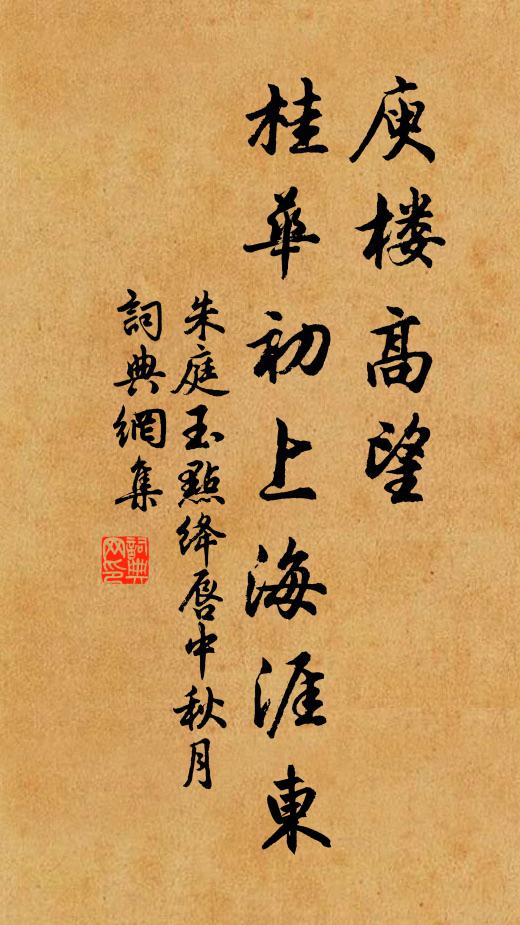 庾楼高望
桂華初上海涯東
朱庭玉點絳唇中秋月
詞典網集
詞典网印